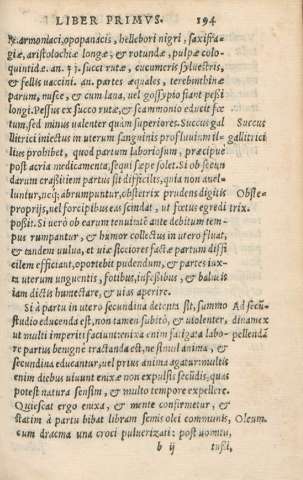 LIBER PRIMVS. 194
armoniaci, opopanacis, hellebori nigri, saxifra-
giæ, aristolochiæ longæ, & rotundæ, pulpæ colo-
quintidæ. an. succi rutæ, cucumeris syluestris,
& fellis uaccini. an. partes æquales, terebinthinæ
parum, misce, & cum lana, uel gossypio fiant pessi
longi. Pessus ex succo rutæ, & scammonio educit fœ
tum, sed minus ualenter quàm superiores. Succus gal Succus
litrici iniectus in uterum sanguinis profluuium il- gallitrici
lius prohibet, quod partum laboriosum, præcipue
post acria medicamenta, sequi sæpe solet. Si ob secun
darum crasitiem partus sit difficilis, quia non auel-
luntur, necq; abrumpuntur, obstetrix prudens digitis Obste-
proprijs, uel forcipibus eas scindat, ut fœtus egredi trix.
possit. Si uerò ob earum tenuitatē ante debitum tem-
pus rumpantur, & humor collectus in utero fluat,
& tandem uulua, et uiæ sicciores factæ partum diffi
cilem efficiant, oportebit pudendum, & partes iux-
ta uterum unguentis, fotibus, insessibus, & balneis
iam dictis humectare, & uias aperire.
Si à partu in utero secundina detenta sit, summo Ad secū-
studio educenda est, non tamen subitò, & uiolenter, dinam ex
ut multi imperiti faciunt: enixa enim fatigata labo- pellendā
re partus benigne tractanda est, ne simul anima, &
secundina educantur, uel prius anima agatur: multis
enim diebus uiuunt enixæ non expulsis secūdis, quas
potest natura sensim, & multo tempore expellere.
Quiescat ergo enixa, & mente confirmetur, &
statim à partu bibat libram semis olei communis, Oleum.
cum dracma una croci puluerizati: post uomitu,
b ij tussi,